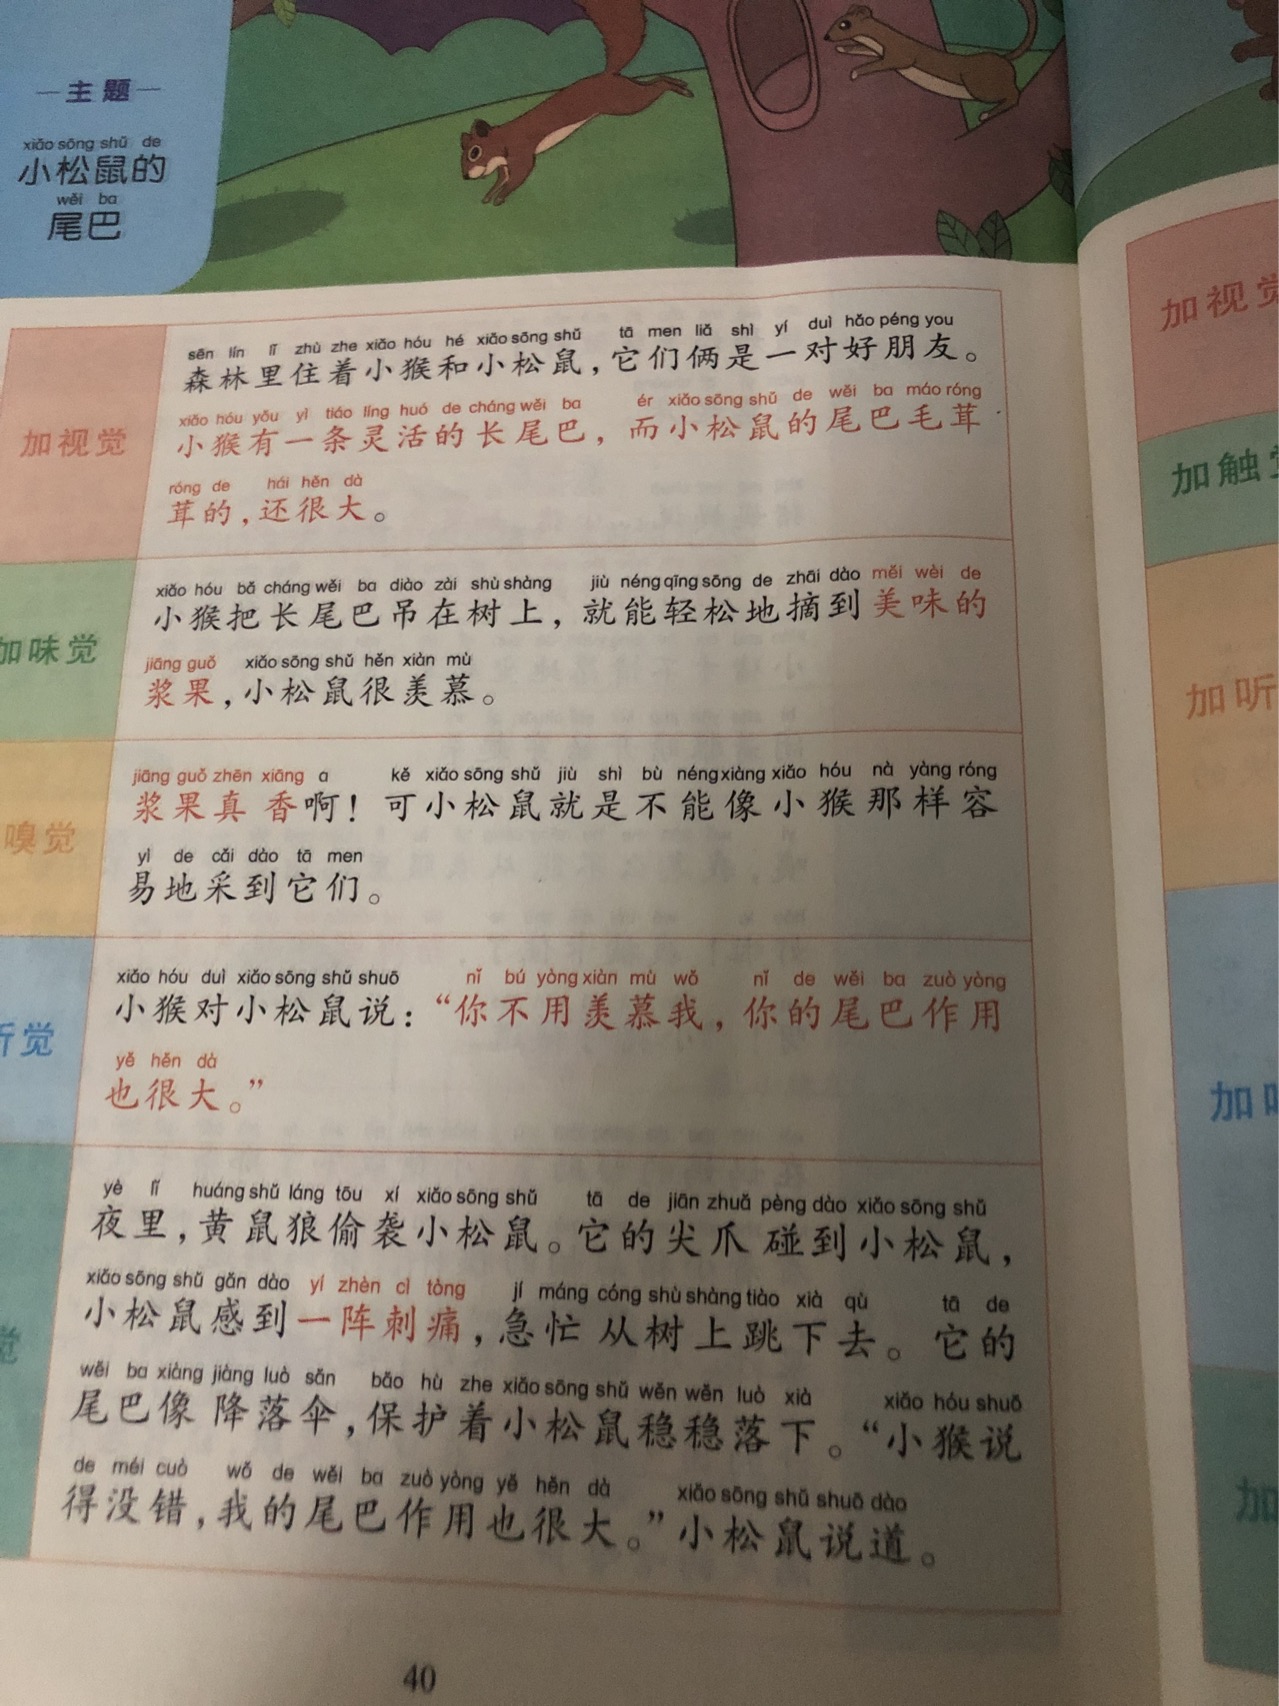 主题
xiǎo sōng shǔ de
小松鼠的
wěi ba
尾巴
加视觉
sēn lín lǐ zhù zhe xiǎo hóu hé xiǎo sōng shǔ tā men liǎ shì yí duì hǎo péng you
森林里住着小猴和小松鼠，它们俩是一对好朋友。
xiǎo hóu yǒu yì tiáo líng huó de cháng wěi ba ér xiǎo sōng shǔ de wěi ba máo róng
小猴有一条灵活的长尾巴，而小松鼠的尾巴毛茸
róng de hái hěn dà
茸的，还很大。
加味觉
xiǎo hóu bǎ cháng wěi ba diào zài shù shàng jiù néng qīng sōng de zhāi dào měi wèi de
小猴把长尾巴吊在树上，就能轻松地摘到美味的
jiāng guǒ xiǎo sōng shǔ hěn xiàn mù
浆果，小松鼠很羡慕。
嗅觉
jiāng guǒ zhēn xiāng a kě xiǎo sōng shǔ jiù shì bù néng xiàng xiǎo hóu nà yàng róng
浆果真香啊！可小松鼠就是不能像小猴那样容
yì de cǎi dào tā men
易地采到它们。
听觉
xiǎo hóu duì xiǎo sōng shǔ shuō nǐ bú yòng xiàn mù wǒ nǐ de wěi ba zuò yòng
小猴对小松鼠说：“你不用羡慕我，你的尾巴作用
yě hěn dà
也很大。”
觉
yè lǐ huáng shǔ láng tōu xí xiǎo sōng shǔ tā de jiān zhuǎ pèng dào xiǎo sōng shǔ
夜里，黄鼠狼偷袭小松鼠。它的尖爪碰到小松鼠，
xiǎo sōng shǔ gǎn dào yí zhèn cì tòng jí máng cóng shù shàng tiào xià qù tā de
小松鼠感到一阵刺痛，急忙从树上跳下去。它的
wěi ba xiàng jiàng luò sǎn bǎo hù zhe xiǎo sōng shǔ wěn wěn luò xià xiǎo hóu shuō
尾巴像降落伞，保护着小松鼠稳稳落下。“小猴说
de méi cuò wǒ de wěi ba zuò yòng yě hěn dà xiǎo sōng shǔ shuō dào
得没错，我的尾巴作用也很大。”小松鼠说道。
40
加视觉
加触
加听
加
加